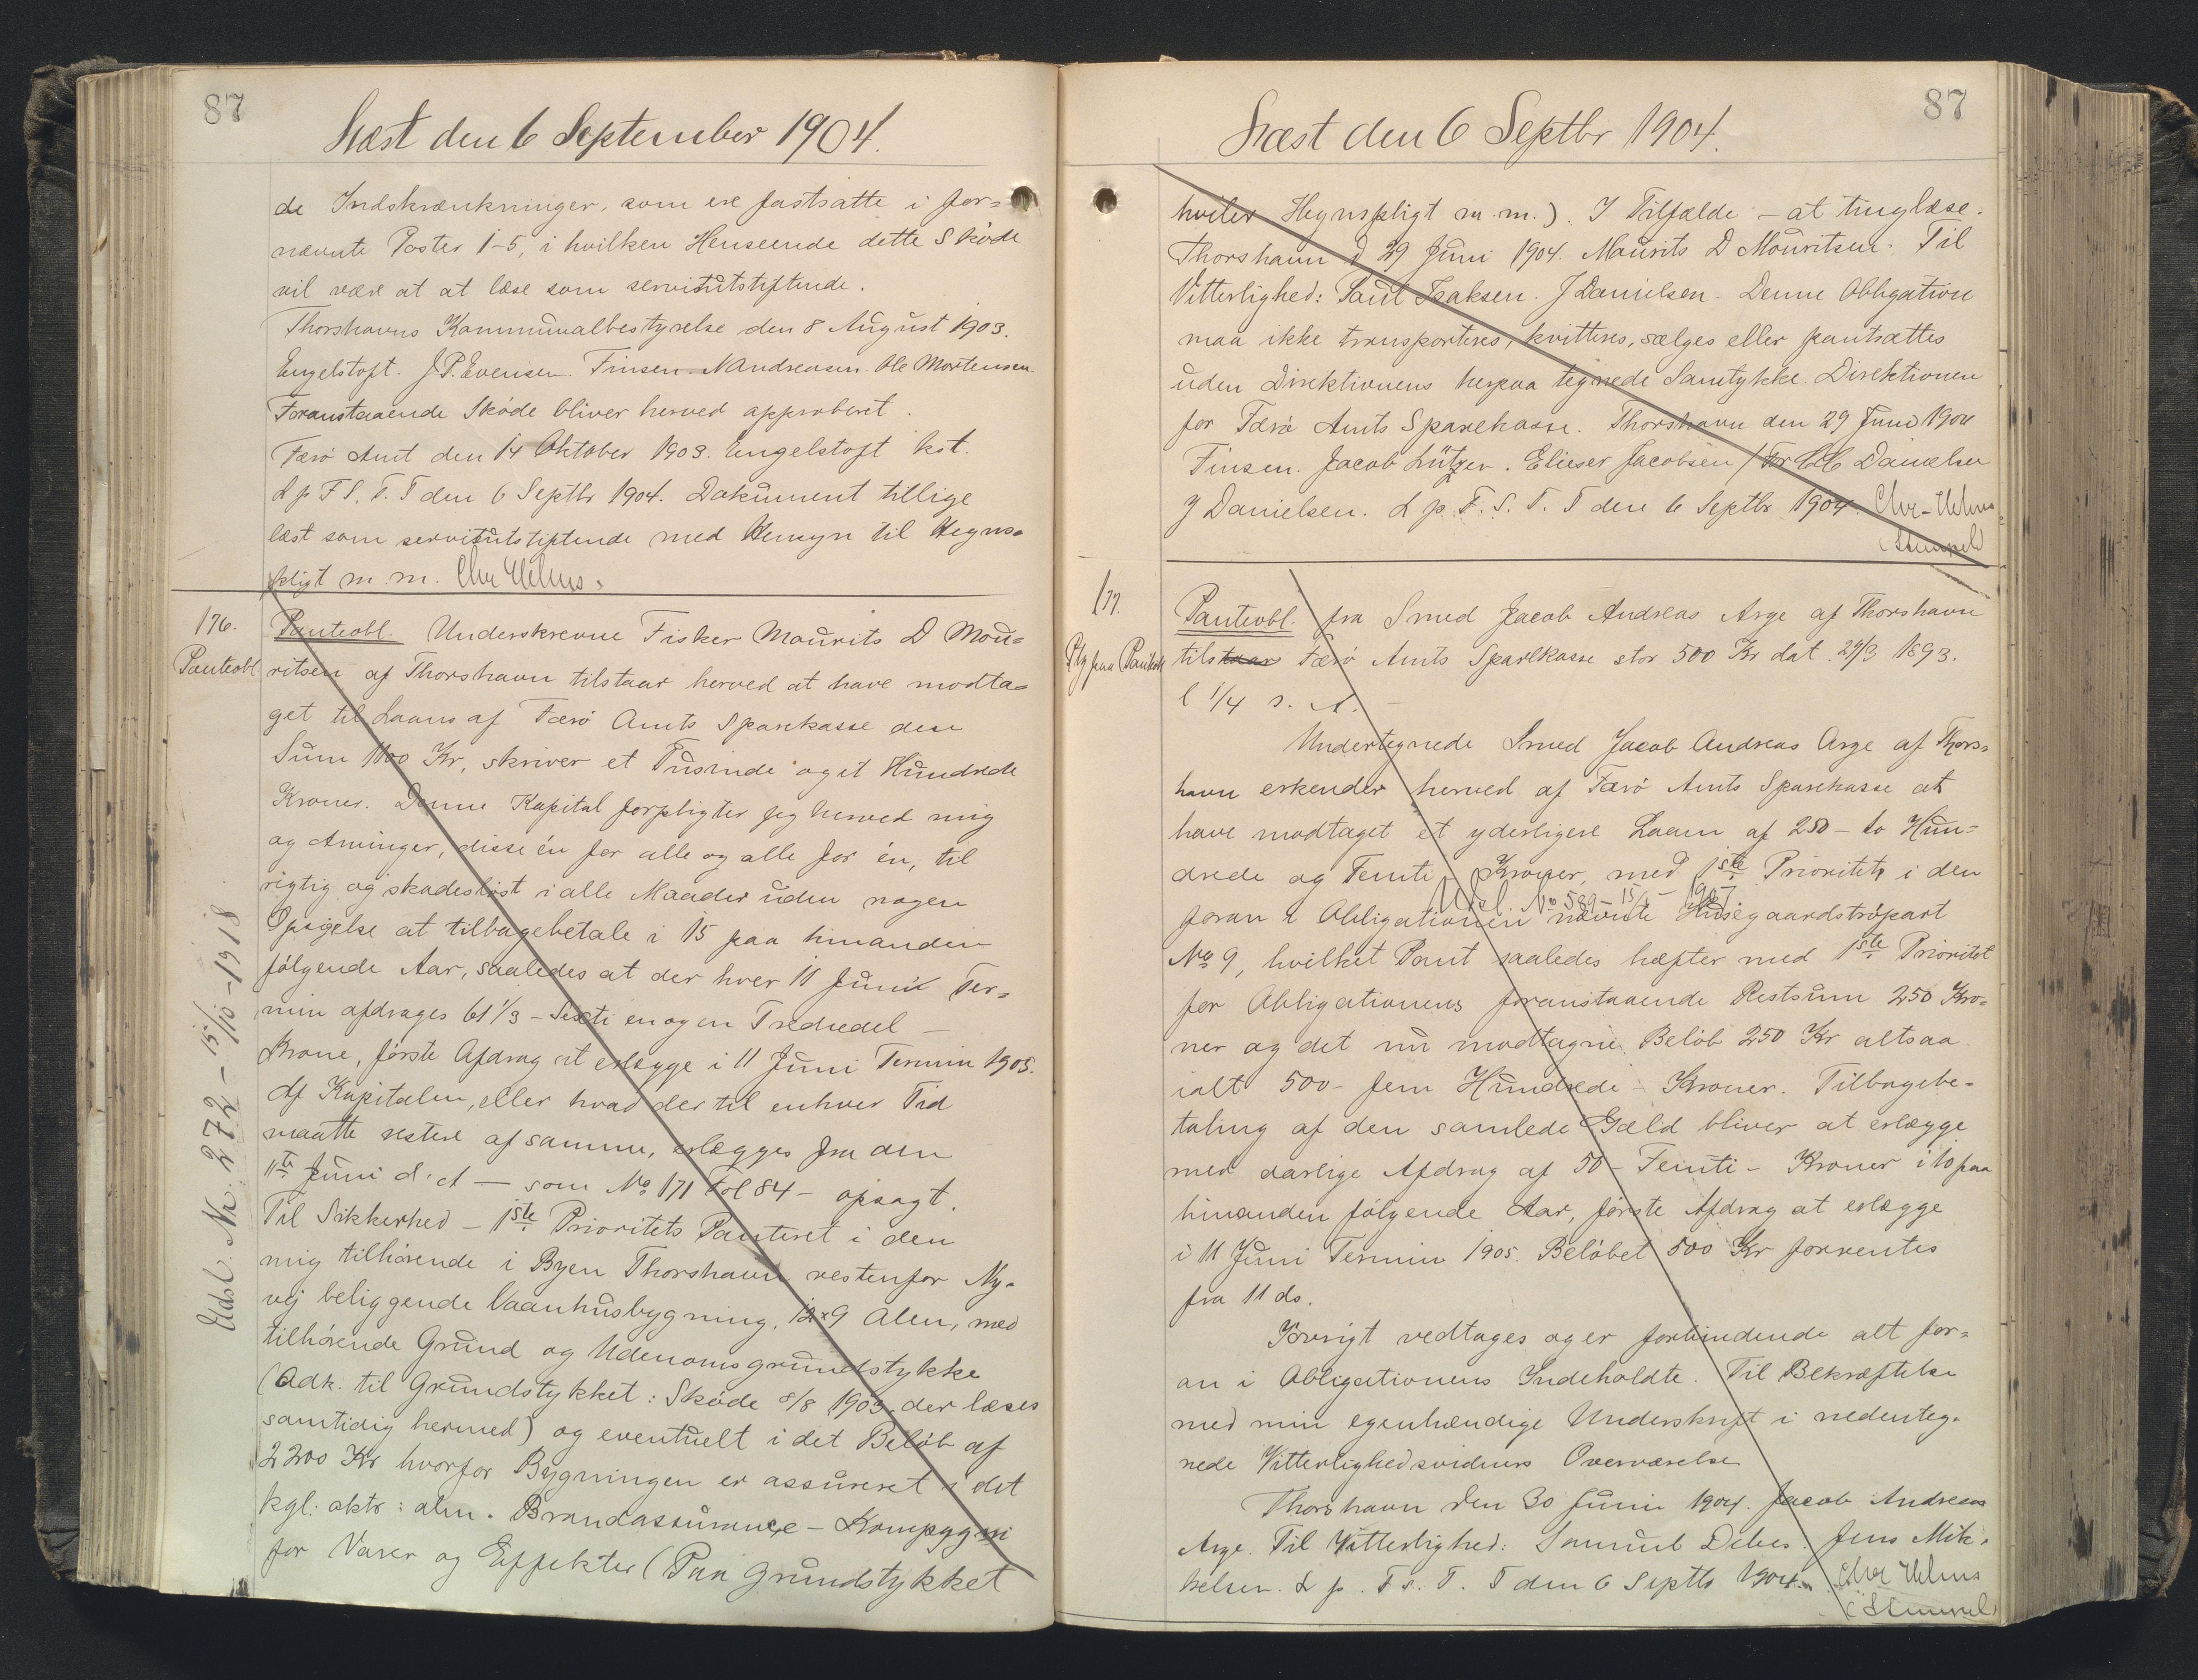 87
Læst den 6 September 1904.
de Indskrænkninger, som ere fastsatte i for=
nævnte Poster 1-5, i hvilken Henseende dette Skøde
vil være at at læse som servitutstiftende.
Thorshavns Kommunalbestyrelse den 8 August 1903.
Engelstoft. J.P. Evensen. Finsen. N Andreasen. Ole Mortensen
Foranstaaende Skøde bliver herved approberet.
Færø Amt den 14 Oktober 1903. Engelstoft kst.
L p F S. T. T den 6 Septbr 1904. Dokument tillige
læst som servitutstiftende med Hensyn til Hegns=
pligt m.m. Chr Helms.
176.
Panteobl
Panteobl. Underskrevne Fisker Maurits D Mou=
ritsen af Thorshavn tilstaar herved at have modta=
get til Laans af Færø Amts Sparekasse den
Sum 1100 Kr, skriver et Tusinde og et Hundrede
Kroner. Denne Kapital forpligter jeg herved mig
og Arvinger, disse én for alle og alle for én, til
rigtig og skadesløst i alle Maader uden nogen
Opsigelse at tilbagebetale i 15 paa hinanden
følgende Aar, saaledes at der hver 11 Juni Ter=
min afdrages 61 1/3 - Sixti en og en Trediedel -
Krone, første Afdrag at erlægge i 11 Juni Termin 1905.
Af Kapitalen, eller hvad der til enhver Tid
maatte restere af samme, erlægges fra den
11te Juni d. A - som No 171 Fol 84 - opsagt.
Til Sikkerhed - 1ste Prioritets Panteret i den
mig tilhørende i Byen Thorshavn vestenfor Ny=
vej beliggende Vaanhusbygning, 12 x 9 Alen, med
tilhørende Grund og Udenomsgrundstykke
(Adk. til Grundstykket: Skøde 8/8 1903, der læses
samtidig hermed) og eventuelt i det Beløb af
2200 Kr hvorfor Bygningen er assureret i det
kgl. oktr: alm. Brandassurance-Kompagni
for Varer og Effekter (Paa Grundstykket
Udsl. Nr. 272 - 15/10 - 1918
87
Læst den 6 Septbr 1904.
hviler Hegnspligt m.m.). I Tilfælde - at tinglæse.
Thorshavn d 29 Juni 1904. Maurits D Mouritsen. Til
Vitterlighed: Paul Isaksen. J Danielsen. Denne Obligation
maa ikke transporteres, kvitteres, sælges eller pantsættes
uden Direktionens herpaa tegnede Samtykke. Direktionen
for Færø Amts Sparekasse. Thorshavn den 29 Juni 1904
Finsen. Jacob Lützen. Elieser Jacobsen / For CC Danielsen
J Danielsen. L p. F. S. T. T den 6 Septbr 1904. Chr. Helms
(Stempel)
177.
Ptg paa Panteobl
Panteobl. fra Smed Jacob Andreas Arge af Thorshavn
tilstaar Færø Amts Sparekasse stor 500 Kr dat. 24/3 1893.
l 1/4 s. A. -
Undertegnede Smed Jacob Andreas Arge af Thors=
havn erkender herved af Færø Amts Sparekasse at
have modtaget et yderligere Laan af 250 - to Hun=
drede og Femti - Kroner, med 1ste Prioritet i den
Udsl. No 589 - 15/ - 1907
foran i Obligationen nævnte Husegaardstrøpart
No 9, hvilket Pant saaledes hæfter med 1ste Prioritet
for Obligationens foranstaaende Restsum 250 Kro=
ner og det nu modtagne Beløb 250 Kr altsaa
ialt 500 - fem Hundrede - Kroner. Tilbagebe=
taling af den samlede Gæld bliver at erlægge
med aarlige Afdrag af 50 - Femti - Kroner i 10 paa
hinanden følgende Aar, første Afdrag at erlægge
i 11 Juni Termin 1905. Beløbet 500 Kr forrentes
fra 11 ds.
Iøvrigt vedtages og er forbindende alt for=
an i Obligationens Indeholdte. Til Bekræftelse
med min egenhændige Underskrift i nedenteg=
nede Vitterlighedsvidners Overværelse
Thorshavn den 30 Juni 1904. Jacob Andreas
Arge. Til Vitterlighed: Samuel Debes. Jens Mik=
kelsen. L p. F s. T. T den 6 Septbr 1904. Chr Helms
(Stempel)